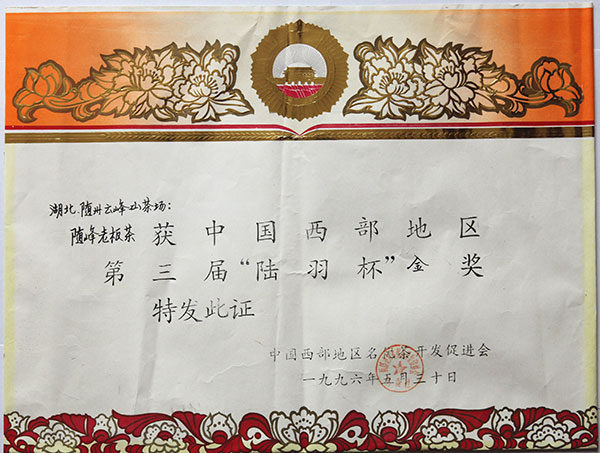 湖北、随州云峰山茶场：
随峰老板茶获中国西部地区
第三届“陆羽杯”金奖
特发此证
中国西部地区名优茶开发促进会
一九九六年五月三十日